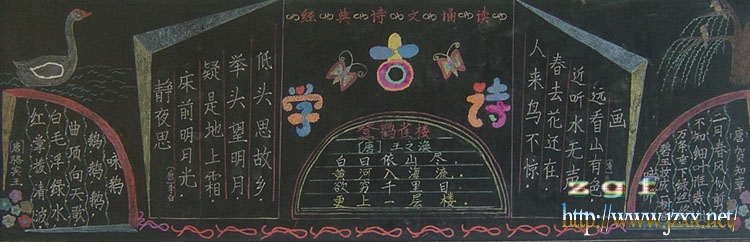 经典诗文诵读
学古诗
咏鹅
鹅鹅鹅
曲项向天歌
白毛浮绿水
红掌拨清波。
唐骆宾王
静夜思
[唐]李白
床前明月光
疑是地上霜.
举头望明月
低头思故乡.
登鹳雀楼
[唐]王之涣
白日依山尽,
黄河入海流.
欲穷千里目,
更上一层楼.
画
远看山有色,
近听水无声
春去花还在
人来鸟不惊.
唐贺知章
二月春风似剪
不知细叶谁裁
万条垂下绿
碧玉妆成
zgt
http://www.jzxx.net/